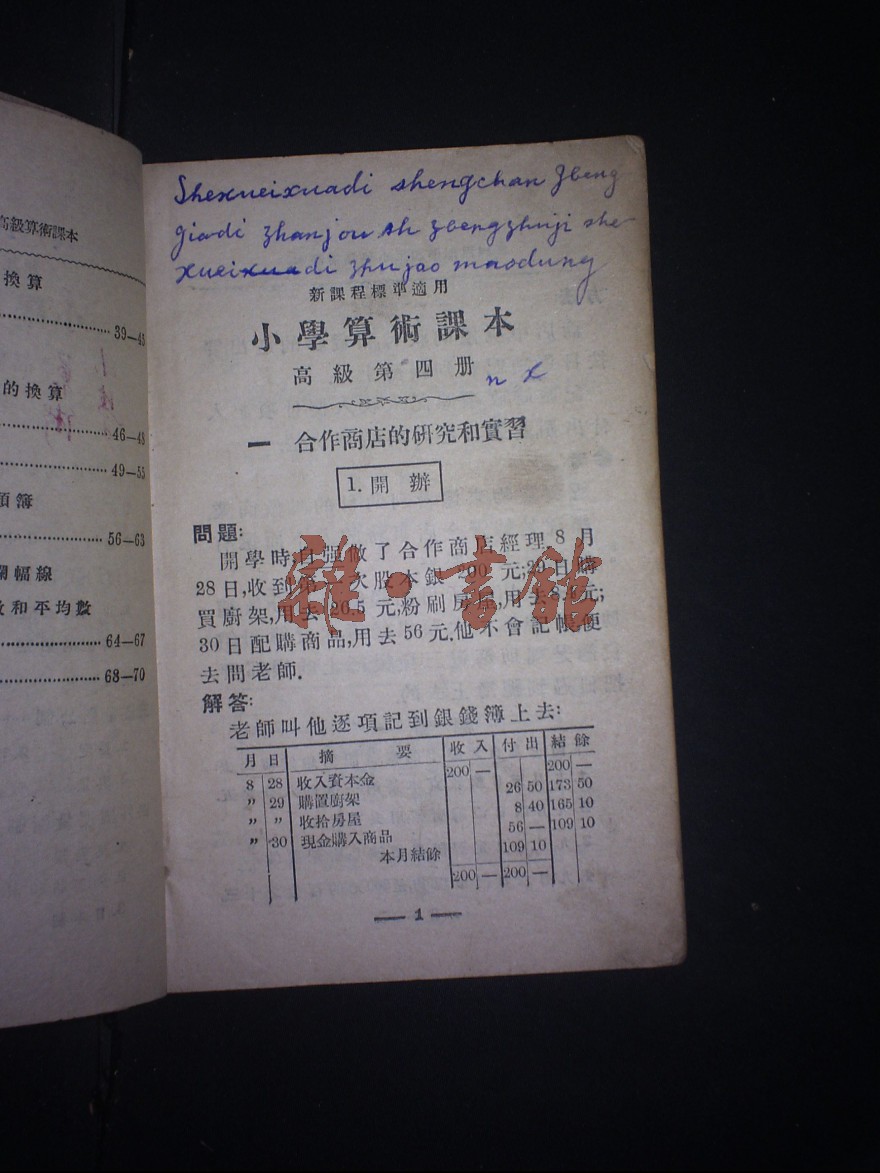 高級算術課本
換算
39—45
的換算
46—48
49—55
項簿
56—63
闌幅線
和平均數
64—67
68—70
Shexueixuadi shengchan
giadi zhanjou sh zbengzhuji she-
xueixuadi zhujao maodung
新課程標準適用
小學算術課本
高級第四册
n x
一 合作商店的研究和實習
1. 開辦
問題:
開學時,自强做了合作商店經理,8月
28日,收到第一次股本銀 200 元;29日購
買廚架,用去 26.5 元,粉刷房屋,用去8.4元;
30日配購商品,用去56元.他不會記帳,便
去問老師.
解答:
老師叫他逐項記到銀錢簿上去:
月 日 摘 要 收入 付出 結餘
8 28 收入資本金 200 — 200 —
〃 29 購置廚架 26 50 173 50
〃 〃 收拾房屋 8 40 165 10
〃 30 現金購入商品 56 — 109 10
本月結餘 109 10
200 — 200 —
— 1 —
雜·書館